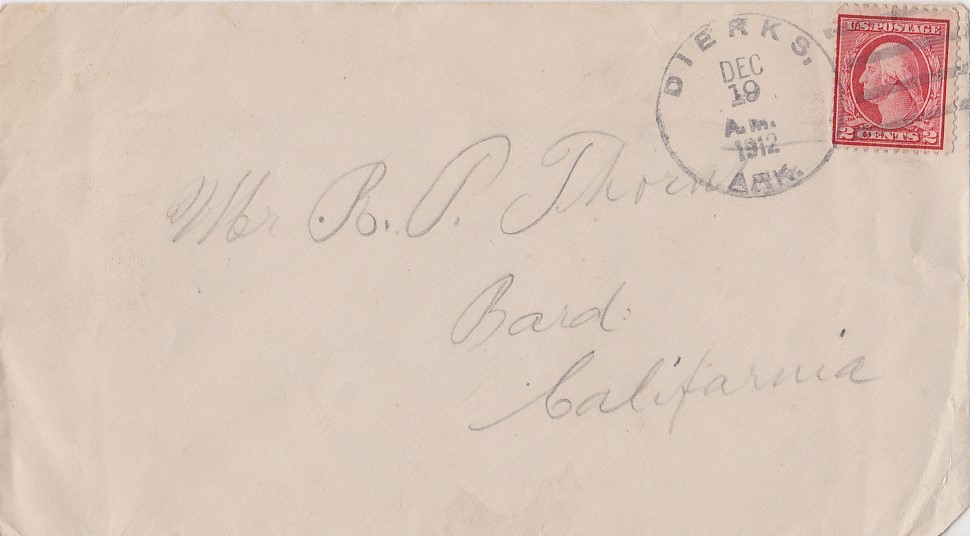 DIERKS,
DEC
19
A.M.
1912
ARK.
U.S. POSTAGE
2 CENTS 2
Mr R. P. Thorn
Bard
California